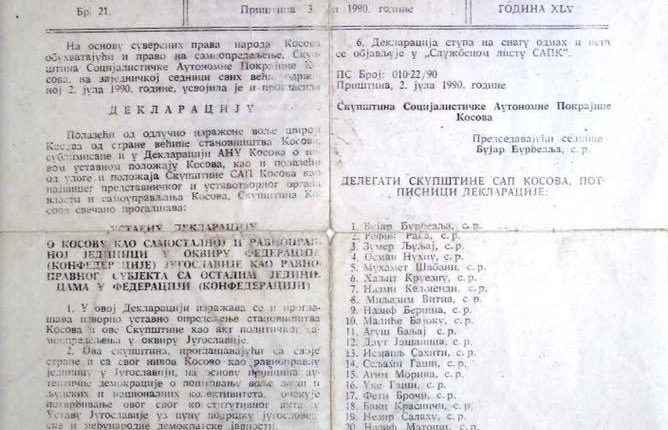 Бр. 21.
Приштина 3 1990. године
ГОДИНА XLV
На основу суверених права народа Косова
обухватајући и право на самоопредељење, Скуп-
штина Социјалистичке Аутономне Покрајине
Косова, на заједничкој седници свих већа
2. јула 1990. године, усвојила је и
ДЕКЛАРАЦИЈУ
Полазећи од одлучно изражене воље широм
Косова од стране већине становништва Косова,
сублимисане и у Декларацији АНУ Косова о
вом уставном положају Косова, као и полазећи
од улоге и положаја Скупштине САП Косова као
највишег представничког и уставотворног органа
власти и самоуправљања Косова, Скупштина
сова свечано проглашава:
УСТАВНУ ДЕКЛАРАЦИЈУ
О КОСОВУ КАО САМОСТАЛНОЈ И РАВНОПРАВ-
НОЈ ЈЕДИНИЦИ У ОКВИРУ ФЕДЕРАЦИЈЕ
(КОНФЕДЕРАЦИЈЕ) ЈУГОСЛАВИЈЕ КАО РАВНО-
ПРАВНОГ СУБЈЕКТА СА ОСТАЛИМ ЈЕДИНИ-
ЦАМА У ФЕДЕРАЦИЈИ (КОНФЕДЕРАЦИЈИ)
1. У овој Декларацији изражава се и
глашава изворно уставно опредељење становништва
Косова и ове Скупштине као акт политичког
моопредељења у оквиру Југославије.
2. Ова скупштина, проглашавајући са своје
стране и са свог нивоа Косово као равноправну
јединицу у Југославији, на основу принципа
тентичне демократије о поштовању воље људи и
људских и националних колективитета, очекује
потврђивање овог свог конститутивног акта у
Уставу Југославије уз пуну подршку југословен-
ске и међународне демократске јавности.
6. Декларација ступа на снагу одмах и
се објављује у „Службеном листу САПК“.
ПС Број: 010-22/90
Приштина, 2. јула 1990. године
Скупштина Социјалистичке Аутономне Покрајине
Косова
Председавајући седнице
Бујар Бурђеала, с. р.
ДЕЛЕГАТИ СКУПШТИНЕ САП КОСОВА, ПОТ-
ПИСНИЦИ ДЕКЛАРАЦИЈЕ:
1. Бујар Бурђеала, с. р.
2. Рефик Рака, с. р.
3. Зумер Љуљај, с. р.
4. Осман Нухиу, с. р.
5. Мухамет Шабани, с. р.
6. Хаљит Круезиу, с. р.
7. Назми Кељменди, с. р.
8. Миљазим Витиа, с. р.
9. Назиф Бериша, с. р.
10. Малиће Бајоку, с. р.
11. Агуш Баљај с. р.
12. Даут Јашаница, с. р.
13. Исмаиљ Сахити, с. р.
14. Сељман Гаши, с. р.
15. Агим Морина, с. р.
16. Уке Гаши, с. р.
17. Фети Брочи, с. р.
18. Баки Красничи, с. р.
19. Незир Салаху, с. р.
20. Назиф Матоши, с. р.